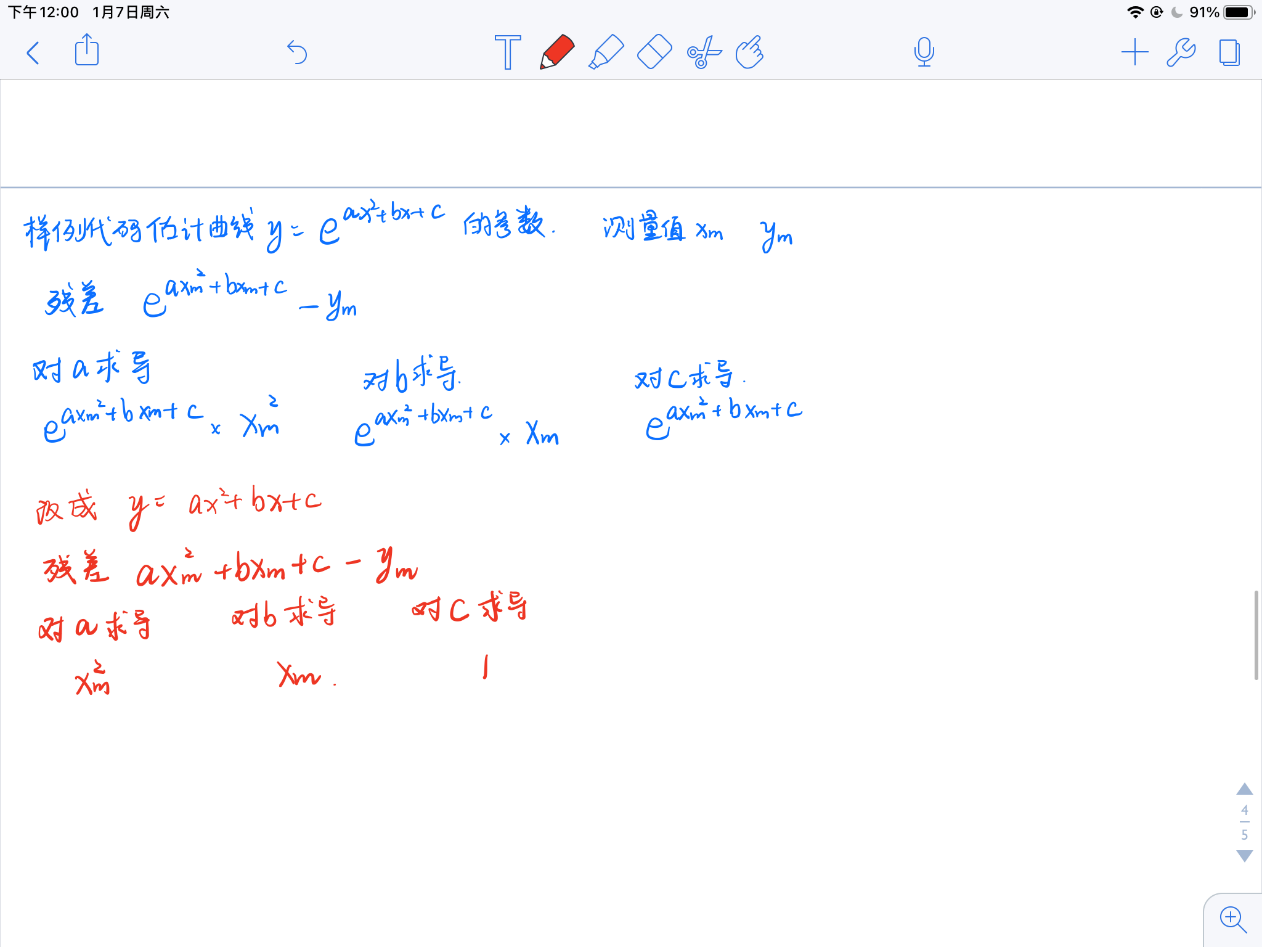 下午12:00 1月7日周六 91%
样例代码估计曲线 y = e^{ax²+bx+c} 的参数. 测量值 xₘ yₘ
残差 e^{axₘ²+bxₘ+c} - yₘ
对a求导 对b求导. 对c求导.
e^{axₘ²+bxₘ+c} × xₘ² e^{axₘ²+bxₘ+c} × xₘ e^{axₘ²+bxₘ+c}
改成 y = ax²+bx+c
残差 axₘ²+bxₘ+c - yₘ
对a求导 对b求导 对c求导
xₘ² xₘ. 1
4
5